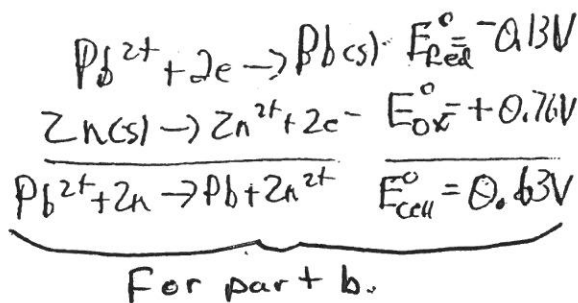 Pb²⁺ + 2e → Pb(s) E°Red = -0.13V
Zn(s) → Zn²⁺ + 2e⁻ E°ox = +0.76V
Pb²⁺ + Zn → Pb + Zn²⁺ E°cell = 0.63V
For part b.